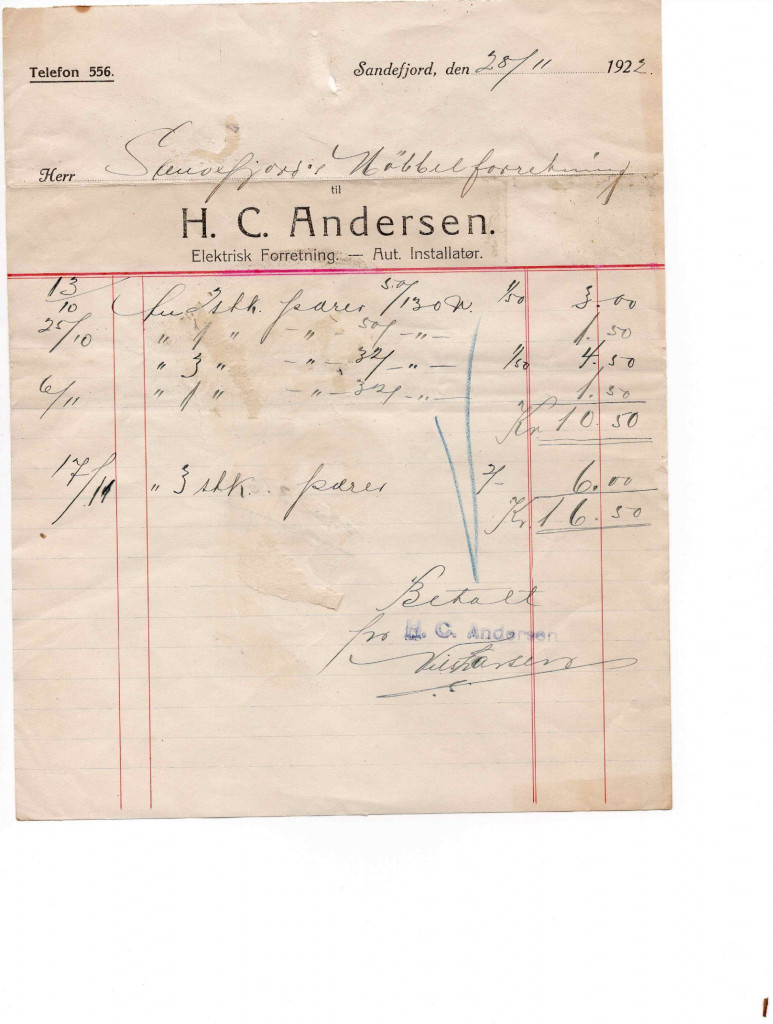 Telefon 556.
Sandefjord, den 28/11 1922.
Herr Møbbelforretning
til
H. C. Andersen.
Elektrisk Forretning. — Aut. Installatør.
13/10 2 stk. pærer 50/130 v. 1/50 3.00
25/10 " 1 " - " - 50/ - " - 1.50
" 3 " - " - 32/ - " - 1/50 4.50
6/11 " 1 " - " - 32/ - " - 1.50
Kr. 10.50
17/11 " 3 stk. pærer 2/- 6.00
Kr. 16.50
Betalt
pro H. C. Andersen